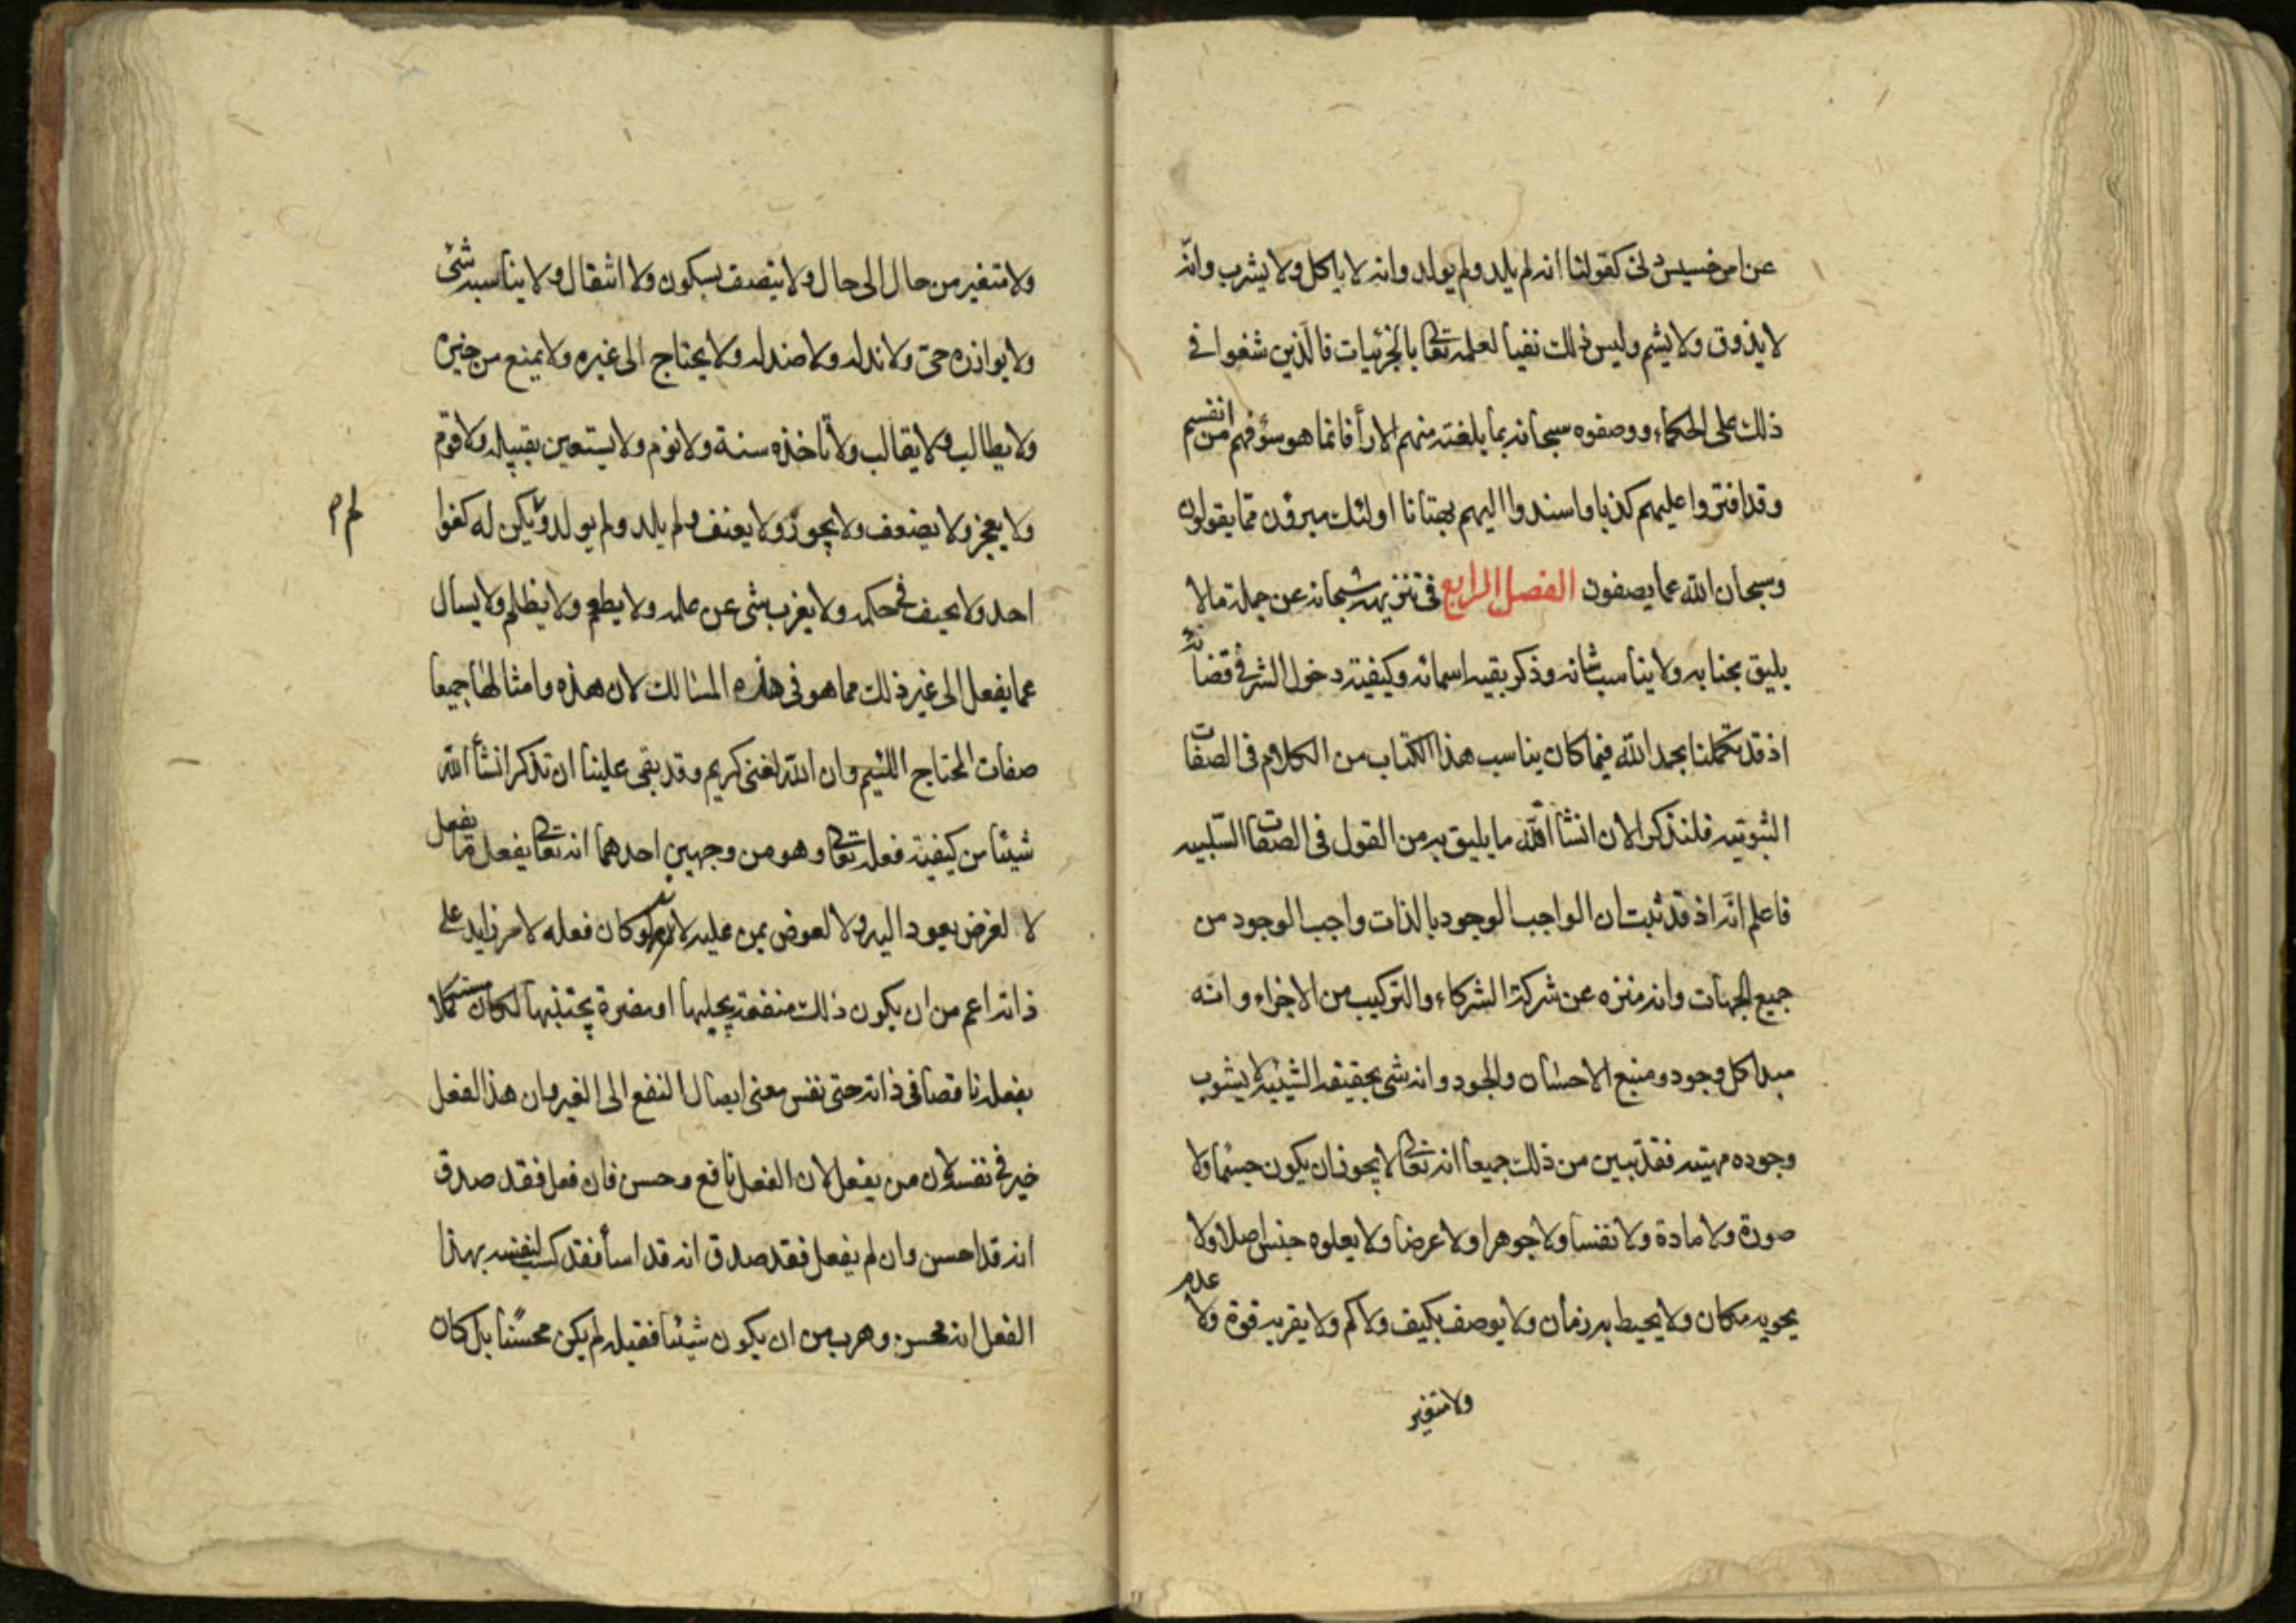 عن امر خسيس دنى كقولنا انه لم يلد ولم يولد وانه لا ياكل ولا يشرب وانّه
لا يذوق ولا يشم وليس ذلك نفيا لعلمه تعالى بالجزئيات فالّذين شغوا فى
ذلك على الحكماء ووصفوه سبحانه بما بلغته منهم الارأ فانما هو سؤ فهم من انفسهم
وقد افتروا عليهم كذبا واسندوا اليهم بهتانا اولئك مبرؤن مما يقولون
وسبحان الله عما يصفون الفصل الرابع فى تنزيهه سبحانه عن جملة مالا
يليق بجنابه ولا يناسب شانه وذكر بقيه اسمائه وكيفية دخول الشر فى قضائه
اذ قد تكملنا بحمد الله فيما كان يناسب هذا الكتاب من الكلام فى الصفات
الثبوتيه فلنذكر الان انشأ الله ما يليق به من القول فى الصفات السّلبيه
فاعلم انّه اذ قد ثبت ان الواجب الوجود بالذات واجب الوجود من
جميع الجهات وانه منزه عن شركة الشركاء والتركيب من الاجزاء وانّه
مبدا كل وجود ومنبع الاحسان والجود وانه شى بحقيقة الشيئية لا يشوب
وجوده مهيته فقد تبين من ذلك جميعا انه تعالى لا يجوز ان يكون جسما ولا
صورة ولا مادة ولا نفسا ولا جوهرا ولا عرضا ولا يعلوه جنس اصلا ولا
يحويه مكان ولا يحيط به زمان ولا يوصف بكيف ولا كم ولا يقربه قوة ولا عدم
ولا متغير
ولا متغير من حال الى حال ولا يتصف بسكون ولا انتقال ولا يناسبه شئ
ولا يوازنه حى ولا ند له ولا ضد له ولا يحتاج الى غيره ولا يمنع من خيره
ولا يطالب ولا يقالب ولا تاخذه سنة ولا نوم ولا يستعين بقبيله ولا قوم
ولا يعجز ولا يضعف ولا يجور ولا يعنف ولم يلد ولم يولد و يكن له كفوا
لم
احد ولا يحيف فى حكمه ولا يغرب شى عن علمه ولا يطعم ولا يظلم ولا يسال
عما يفعل الى غير ذلك مما هو فى هذه المسالك لان هذه وامثالها جميعا
صفات المحتاج اللئيم وان الله لغنى كريم وقد بقى علينا ان نذكر انشأ الله
شيئا من كيفية فعله تعالى وهو من وجهين احدهما انه تعالى يفعل ما يفعل
لا لغرض يعود اليه ولا لعوض يمن عليه لانه لو كان فعله لامر زايد على
ذاته اعم من ان يكون ذلك منفعة يجلبها او مضرة يجتنبها لكان مستكملا
بفعله ناقصا فى ذاته حتى نفس معنى ايصال النفع الى الغير وان هذا الفعل
خير فى نفسه لان من يفعل لان الفعل نافع وحسن فان فعل فقد صدق
انه قد احسن وان لم يفعل فقد صدق انه قد اسأ فقد كسب لنفسه بهذا
الفعل انه محسن وهرب من ان يكون شيئا فقيل لم يكن محسنًا بل كان